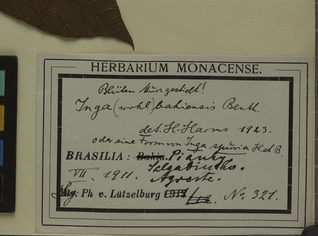 HERBARIUM MONACENSE.
Blüten kurzgestielt!
Inga (wohl) bahiensis Benth.
det. H. Harms 1923.
oder eine Form von Inga spuria H et B.
BRASILIA: Bahia. Piauhy
VII. 1911.
Agreste.
Leg. Ph. v. Lützelburg No. 321.